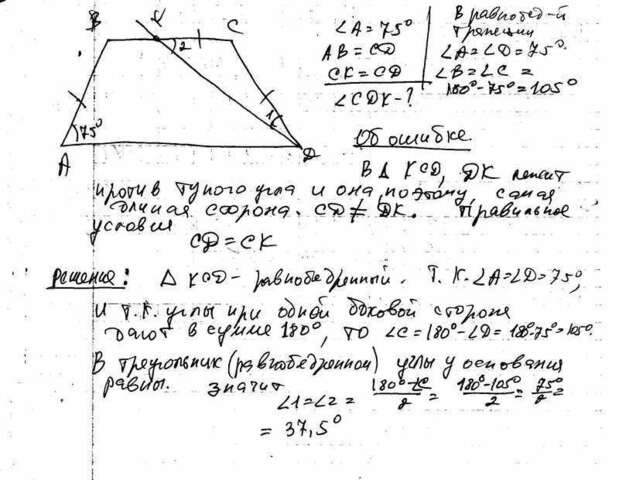 B K C
2
75°
A D
∠A = 75°
AB = CD
CK = CD
∠CDK - ?
В равнобед-й
трапеции
∠A = ∠D = 75°.
∠B = ∠C =
180° - 75° = 105°
Об ошибке
В Δ KCD, DK лежит
против тупого угла и она, поэтому, самая
длинная сторона. CD ≠ DK. Правильное
условия
CD = CK
Решение: Δ KCD - равнобедренный. Т.К. ∠A = ∠D = 75°,
и т.к. углы при одной боковой стороне
дают в сумме 180°, то ∠C = 180° - ∠D = 180° - 75° = 105°
В треугольник (равнобедренном) углы у основания
равны. Значит
∠1 = ∠2 = (180° - ∠C)/2 = (180° - 105°)/2 = 75°/2 =
= 37,5°